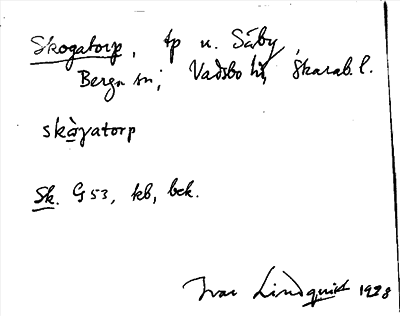 Skogatorp, tp u. Säby,
Bergs sn, Vadsbo hd, Skarab. l.
skàgatorp
Sk. G 53, kb, bek.
Ivar Lindquist 1928